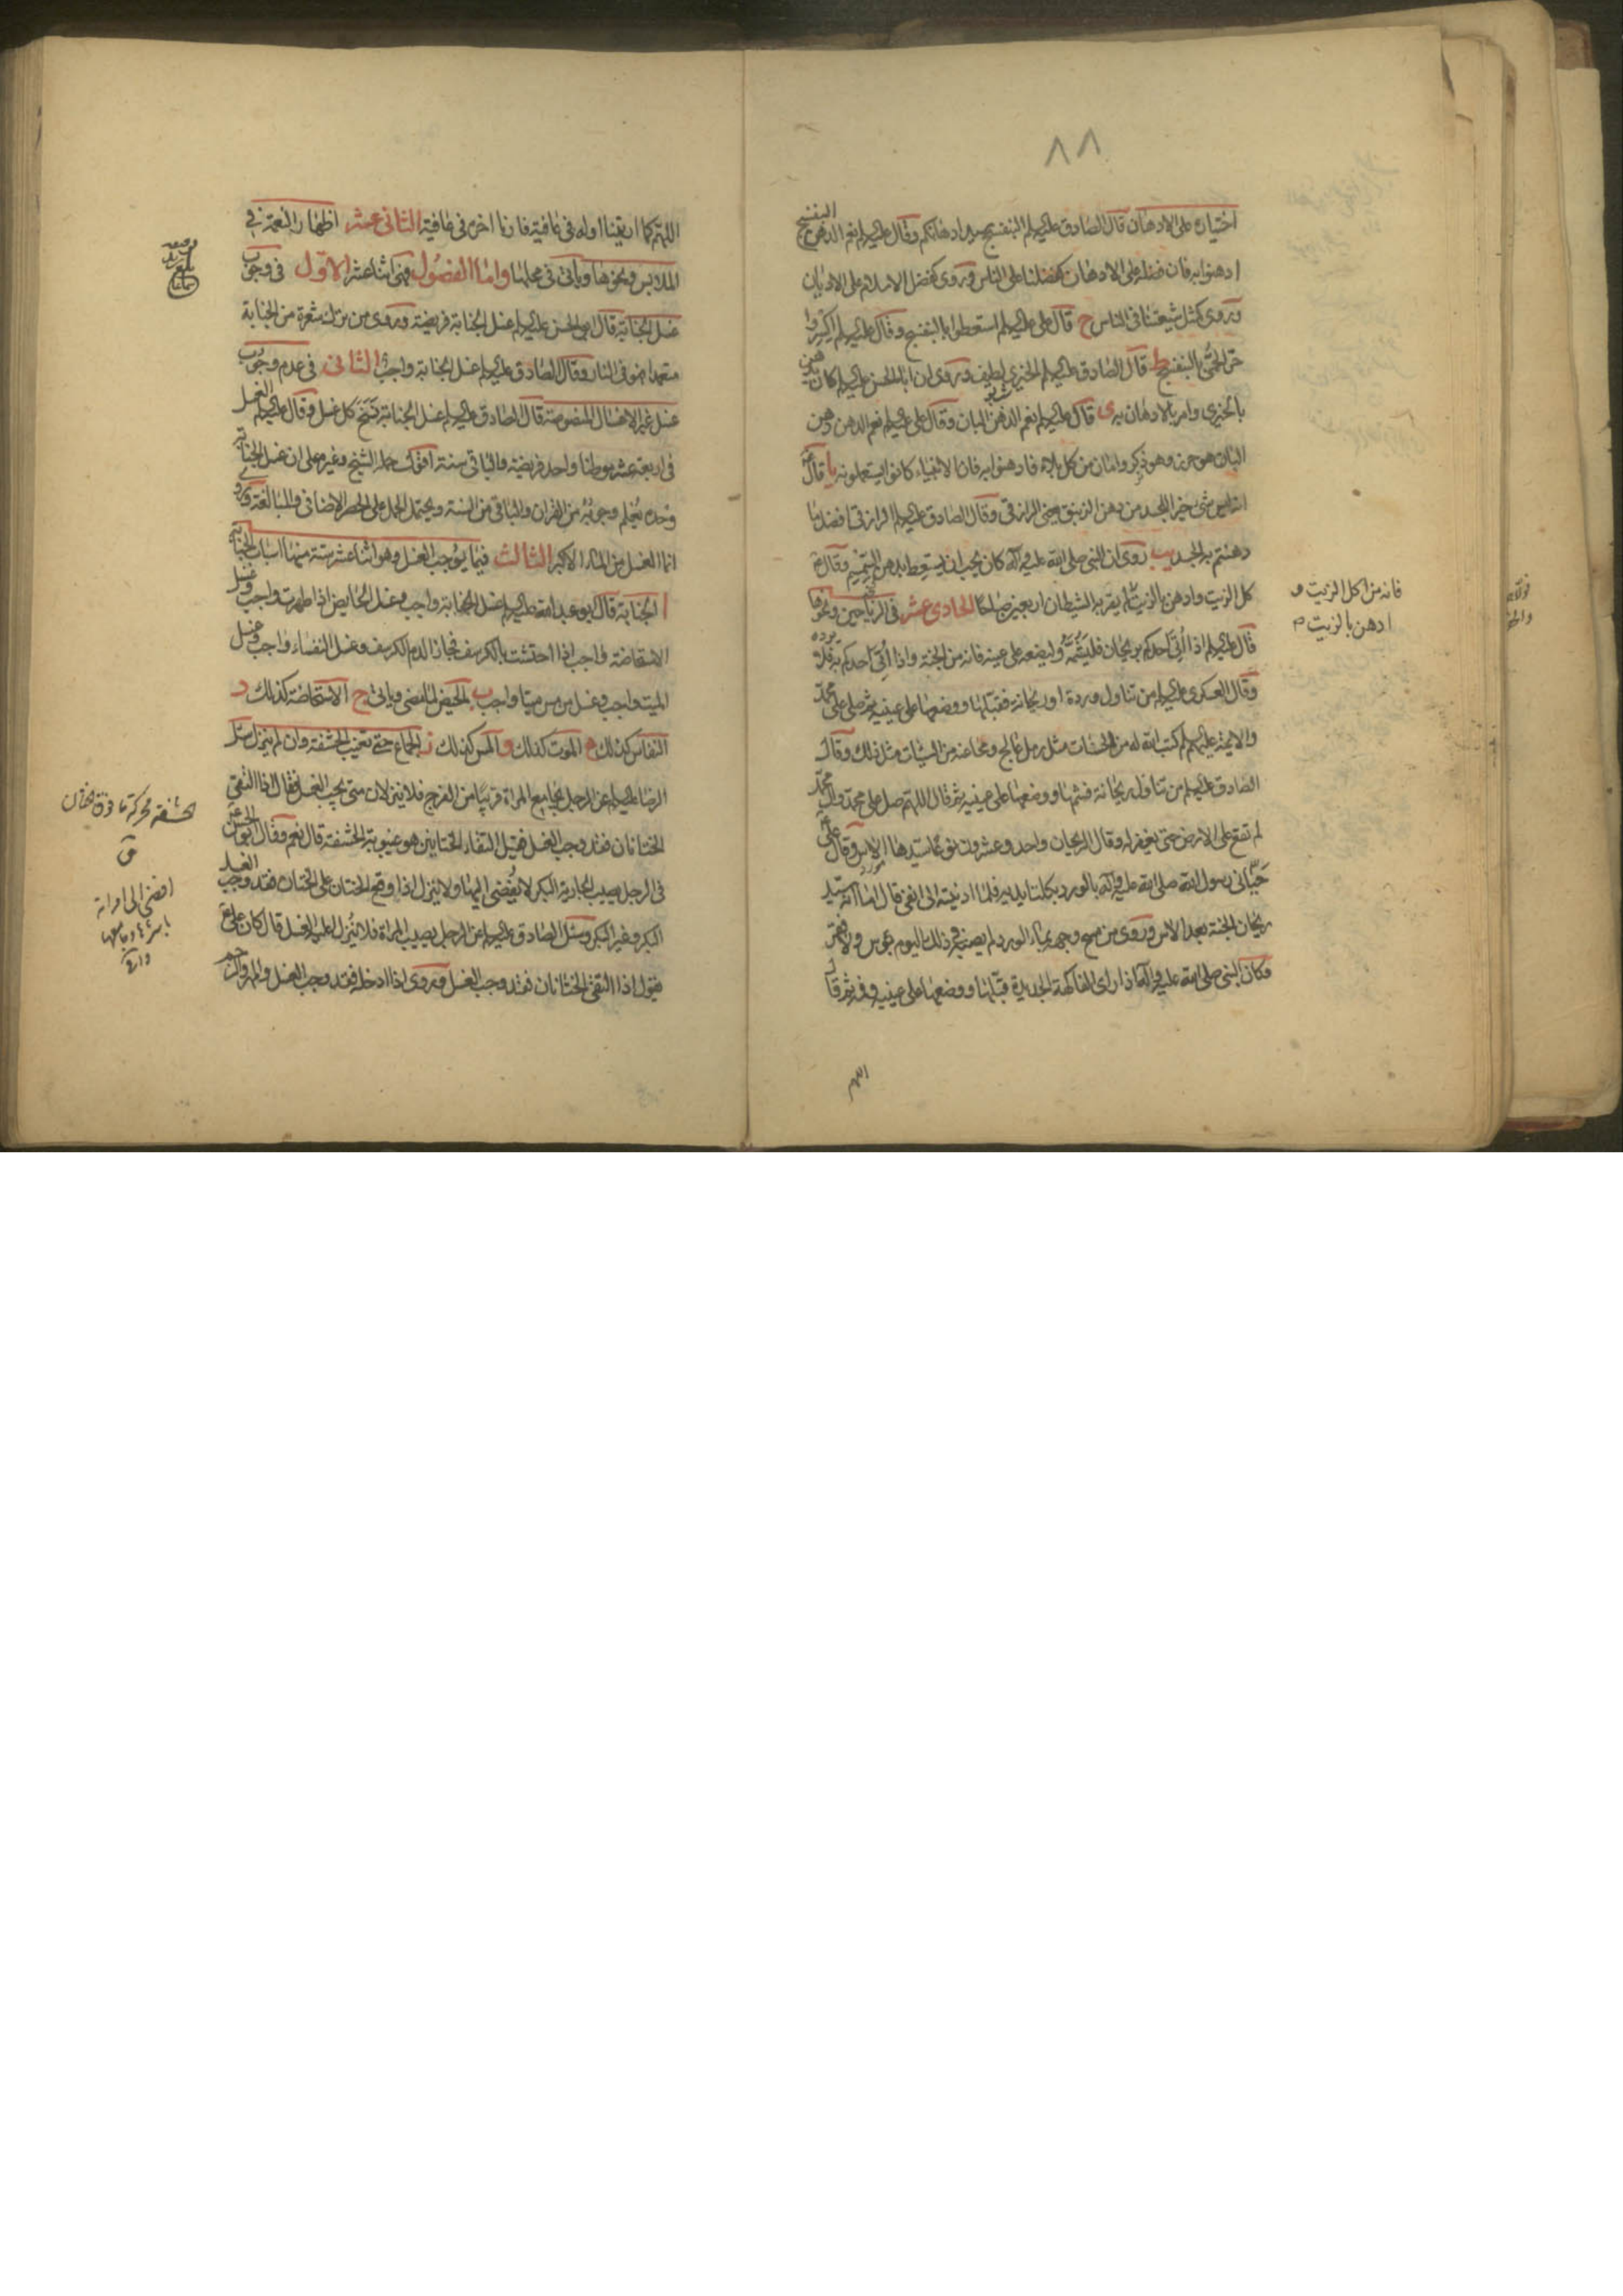 ٨٨
اختياره على الادهان قال الصادق عليه السلم البنفسج سيد ادهانكم وقال عليه السلم نعم الدهن البنفسج
ادهنوا به فان فضله على الادهان كفضلنا على الناس وروى كفضل الاسلام على الاديان
وروى كمثل شيعتنا فى الناس ح قال على عليه السلم استعطوا بالبنفسج وقال عليه السلم اكسروا
حر الحمى بالبنفسج ط قال الصادق عليه السلم الخيرى لطيف وروى ان ابا الحسن عليه السلم كان يدهن
بالخيرى وامر بالادهان به ى قال عليه السلم نعم الدهن البان وقال على عليه السلم نعم الدهن دهن
البان هو حرز وهو ذكر وامان من كل بلاء فادهنوا به فان الانبياء كانوا يستعملونه يا قال
انه ليس شئ خير للجسد من دهن الزنبق يعنى الرازقى وقال الصادق عليه السلم الرازقى افضل ما
دهنتم به الجسد يب روى ان النبى صلى الله عليه وآله كان يحب ان يستعط بدهن السمسم وقال
كل الزيت وادهن بالزيت لم يقربه الشيطان اربعين صباحا الحادى عشر فى الرياحين ونحوها
قال عليه السلم اذا اتى احدكم بريحان فليشمه وليضعه على عينه فانه من الجنة واذا اتى احدكم به فلا يرده
وقال العسكرى عليه السلم من تناول وردة او ريحانة فقبلها ووضعها على عينيه ثم صلى على محمد
والائمة عليهم السلم كتب الله له من الحسنات مثل رمل عالج ومحا عنه من السيئات مثل ذلك وقال
الصادق عليه السلم من تناول ريحانة فشمها ووضعها على عينيه ثم قال اللهم صل على محمد وال محمد
لم تقع على الارض حتى يغفر له وقال الريحان واحد وعشرون نوعا سيدها الاس وقال على
حبانى رسول الله صلى الله عليه وآله بالورد بكلتا يديه فلما ادنيته الى انفى قال اما انه سيد
ريحان الجنة بعد الاس وروى من مسح وجهه بماء الورد لم يصبه فى ذلك اليوم بؤس ولا فقر
وكان النبى صلى الله عليه وآله اذا راى الفاكهة الجديدة قبلها ووضعها على عينيه وفمه ثم قال
اللهم
فانه من اكل الزيت و
ادهن بالزيت
اللهم كما اريتنا اوله فى عافية فارنا اخره فى عافية الثانى عشر اظهار النعمة فى
الملابس ونحوها وياتى فى محلها واما الفصول فهى اثنا عشر الاول فى وجوب
غسل الجنابة قال ابو الحسن عليه السلم غسل الجنابة فريضة وروى من ترك شعرة من الجنابة
متعمدا فهو فى النار وقال الصادق عليه السلم غسل الجنابة واجب الثانى فى عدم وجوب
غسل غير الاغسال المنصوصة قال الصادق عليه السلم غسل الجنابة نسخ كل غسل وقال عليه السلم الغسل
فى اربعة عشر موطنا واحد فريضة والباقى سنة اقول حمله الشيخ وغيره على ان غسل الجنابة
وحده يعلم وجوبه من القران والباقى من السنة ويحتمل الحمل على الحصر الاضافى والمبالغة وروى
انما الغسل من الماء الاكبر الثالث فيما يوجب الغسل وهو اثنا عشر ستة منها اسباب الجنابة
ا الجنابة قال ابو عبد الله عليه السلم غسل الجنابة واجب وغسل الحايض اذا طهرت واجب وغسل
الاستحاضة واجب اذا احتشت بالكرسف فجاز الدم الكرسف وغسل النفساء واجب وغسل
الميت واجب وغسل من مس ميتا واجب ب الحيض لما مضى وياتى ج الاستحاضة كذلك د
النفاس كذلك ه الموت كذلك و المس كذلك ز الجماع حتى تغيب الحشفة وان لم ينزل سئل
الرضا عليه السلم عن الرجل يجامع المراة قريبا من الفرج فلا ينزلان متى يجب الغسل فقال اذا التقى
الختانان فقد وجب الغسل فقيل التقاء الختانين هو غيبوبة الحشفة قال نعم وقال ابو الحسن
فى الرجل يصيب الجارية البكر لا يفضى اليها ولا ينزل اذا وقع الختان على الختان فقد وجب الغسل
البكر وغير البكر وسئل الصادق عليه السلم عن الرجل يصيب المراة فلا ينزل اعليه الغسل قال كان على
يقول اذا التقى الختانان فقد وجب الغسل وروى اذا ادخله فقد وجب الغسل والمهر والرجم
الحشفة محركة ما فوق الختان
ق
افضى الى امراته
باشرها وجامعها